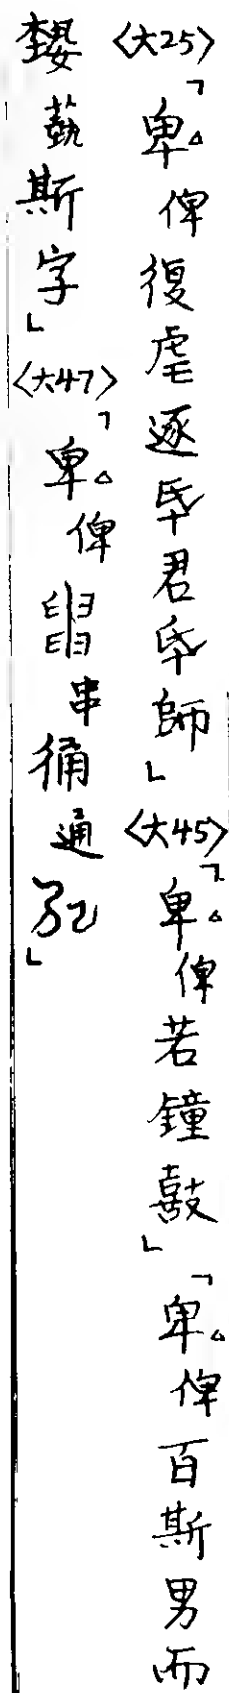 〈大25〉「卑△俾復虐逐氒君氒師」〈大45〉「卑△俾若鐘鼓」「卑△俾百斯男而
埶斯字」〈大47〉「卑△俾串通」